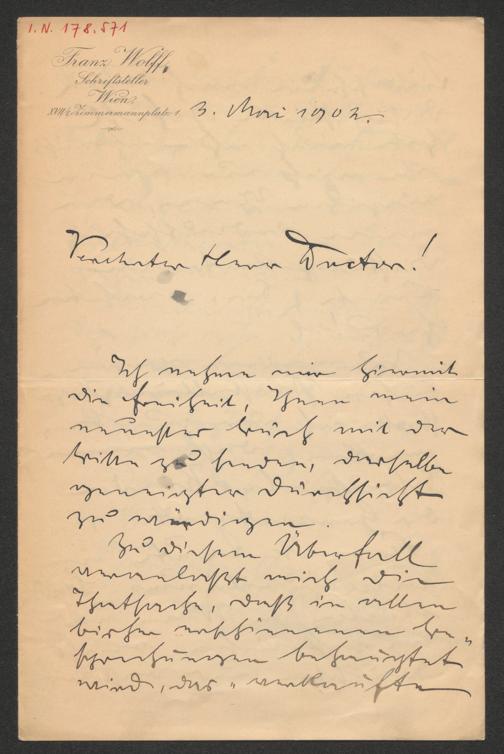 I.N. 178.571
Franz Wolff,
Schriftsteller
Wien,
XVII/2 Zimmermannplatz 1.
3. Mai 1902.
Verehrter Herr Doctor!
Ich nehme mir hiermit
die Freiheit, Ihnen mein
neuestes Buch mit der
Bitte zu senden, dasselbe
geneigter Durchsicht
zu würdigen.
Zu diesem Überfall
veranlaßt mich die
Thatsache, daß in allen
bisher erschienenen Be-
sprechungen behauptet
wird, das „verkaufte